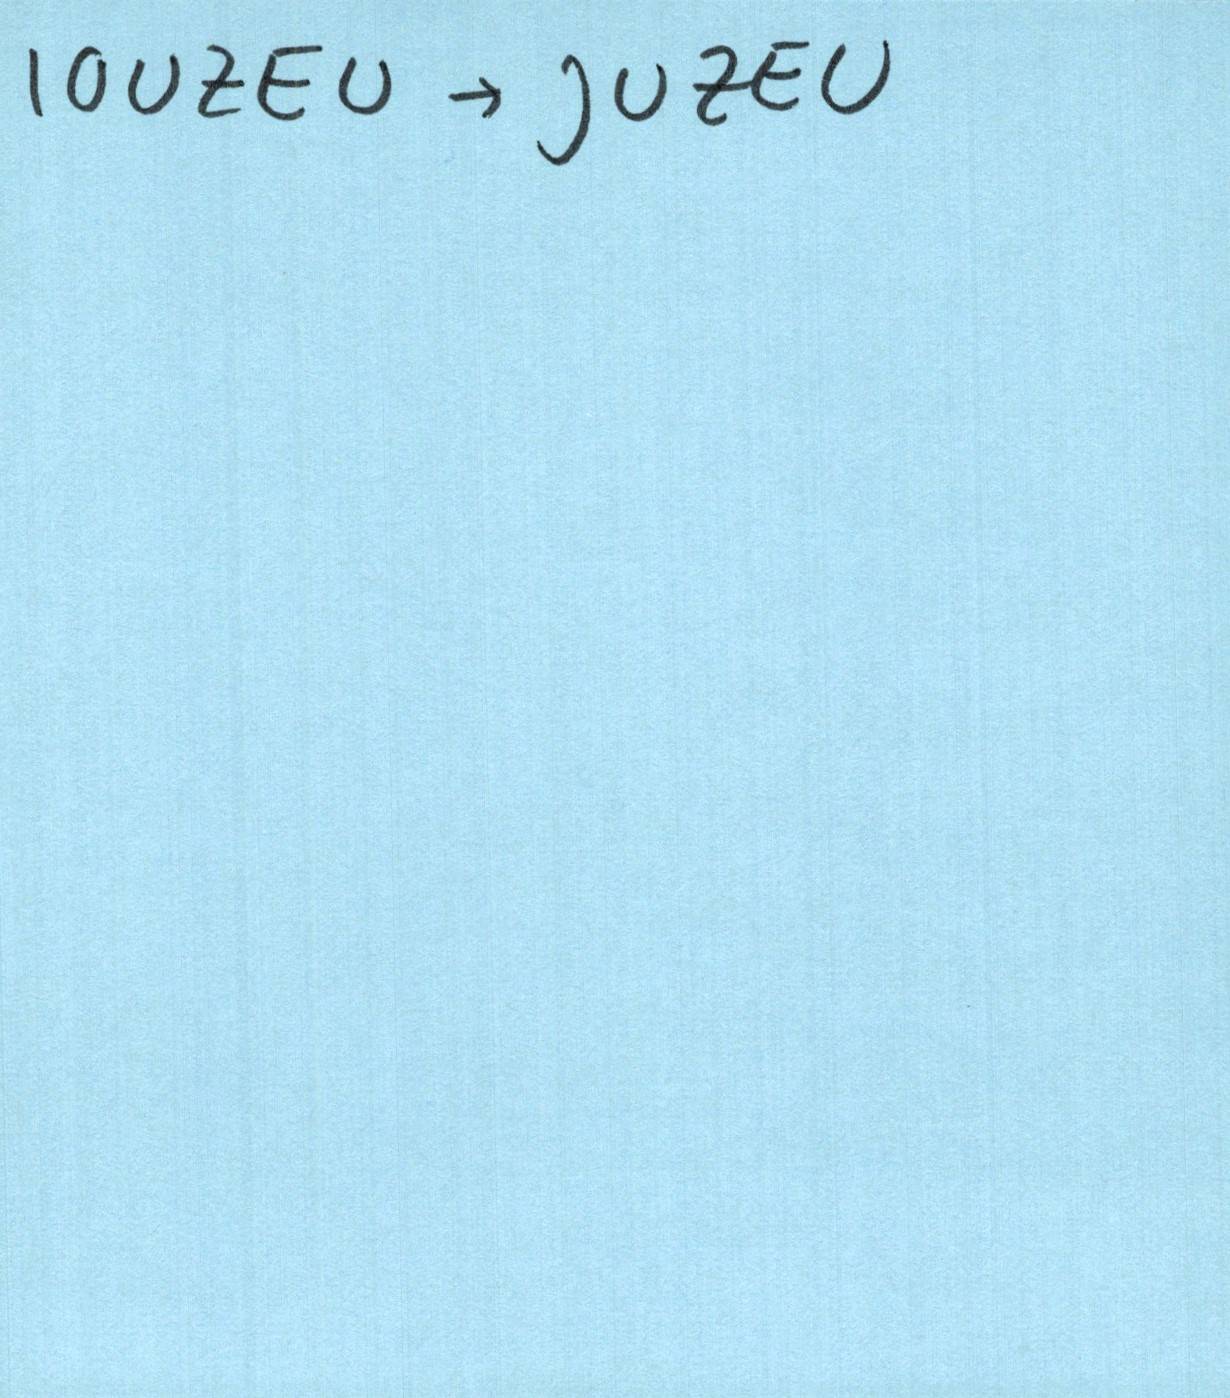 IOUZEU → JUZEU